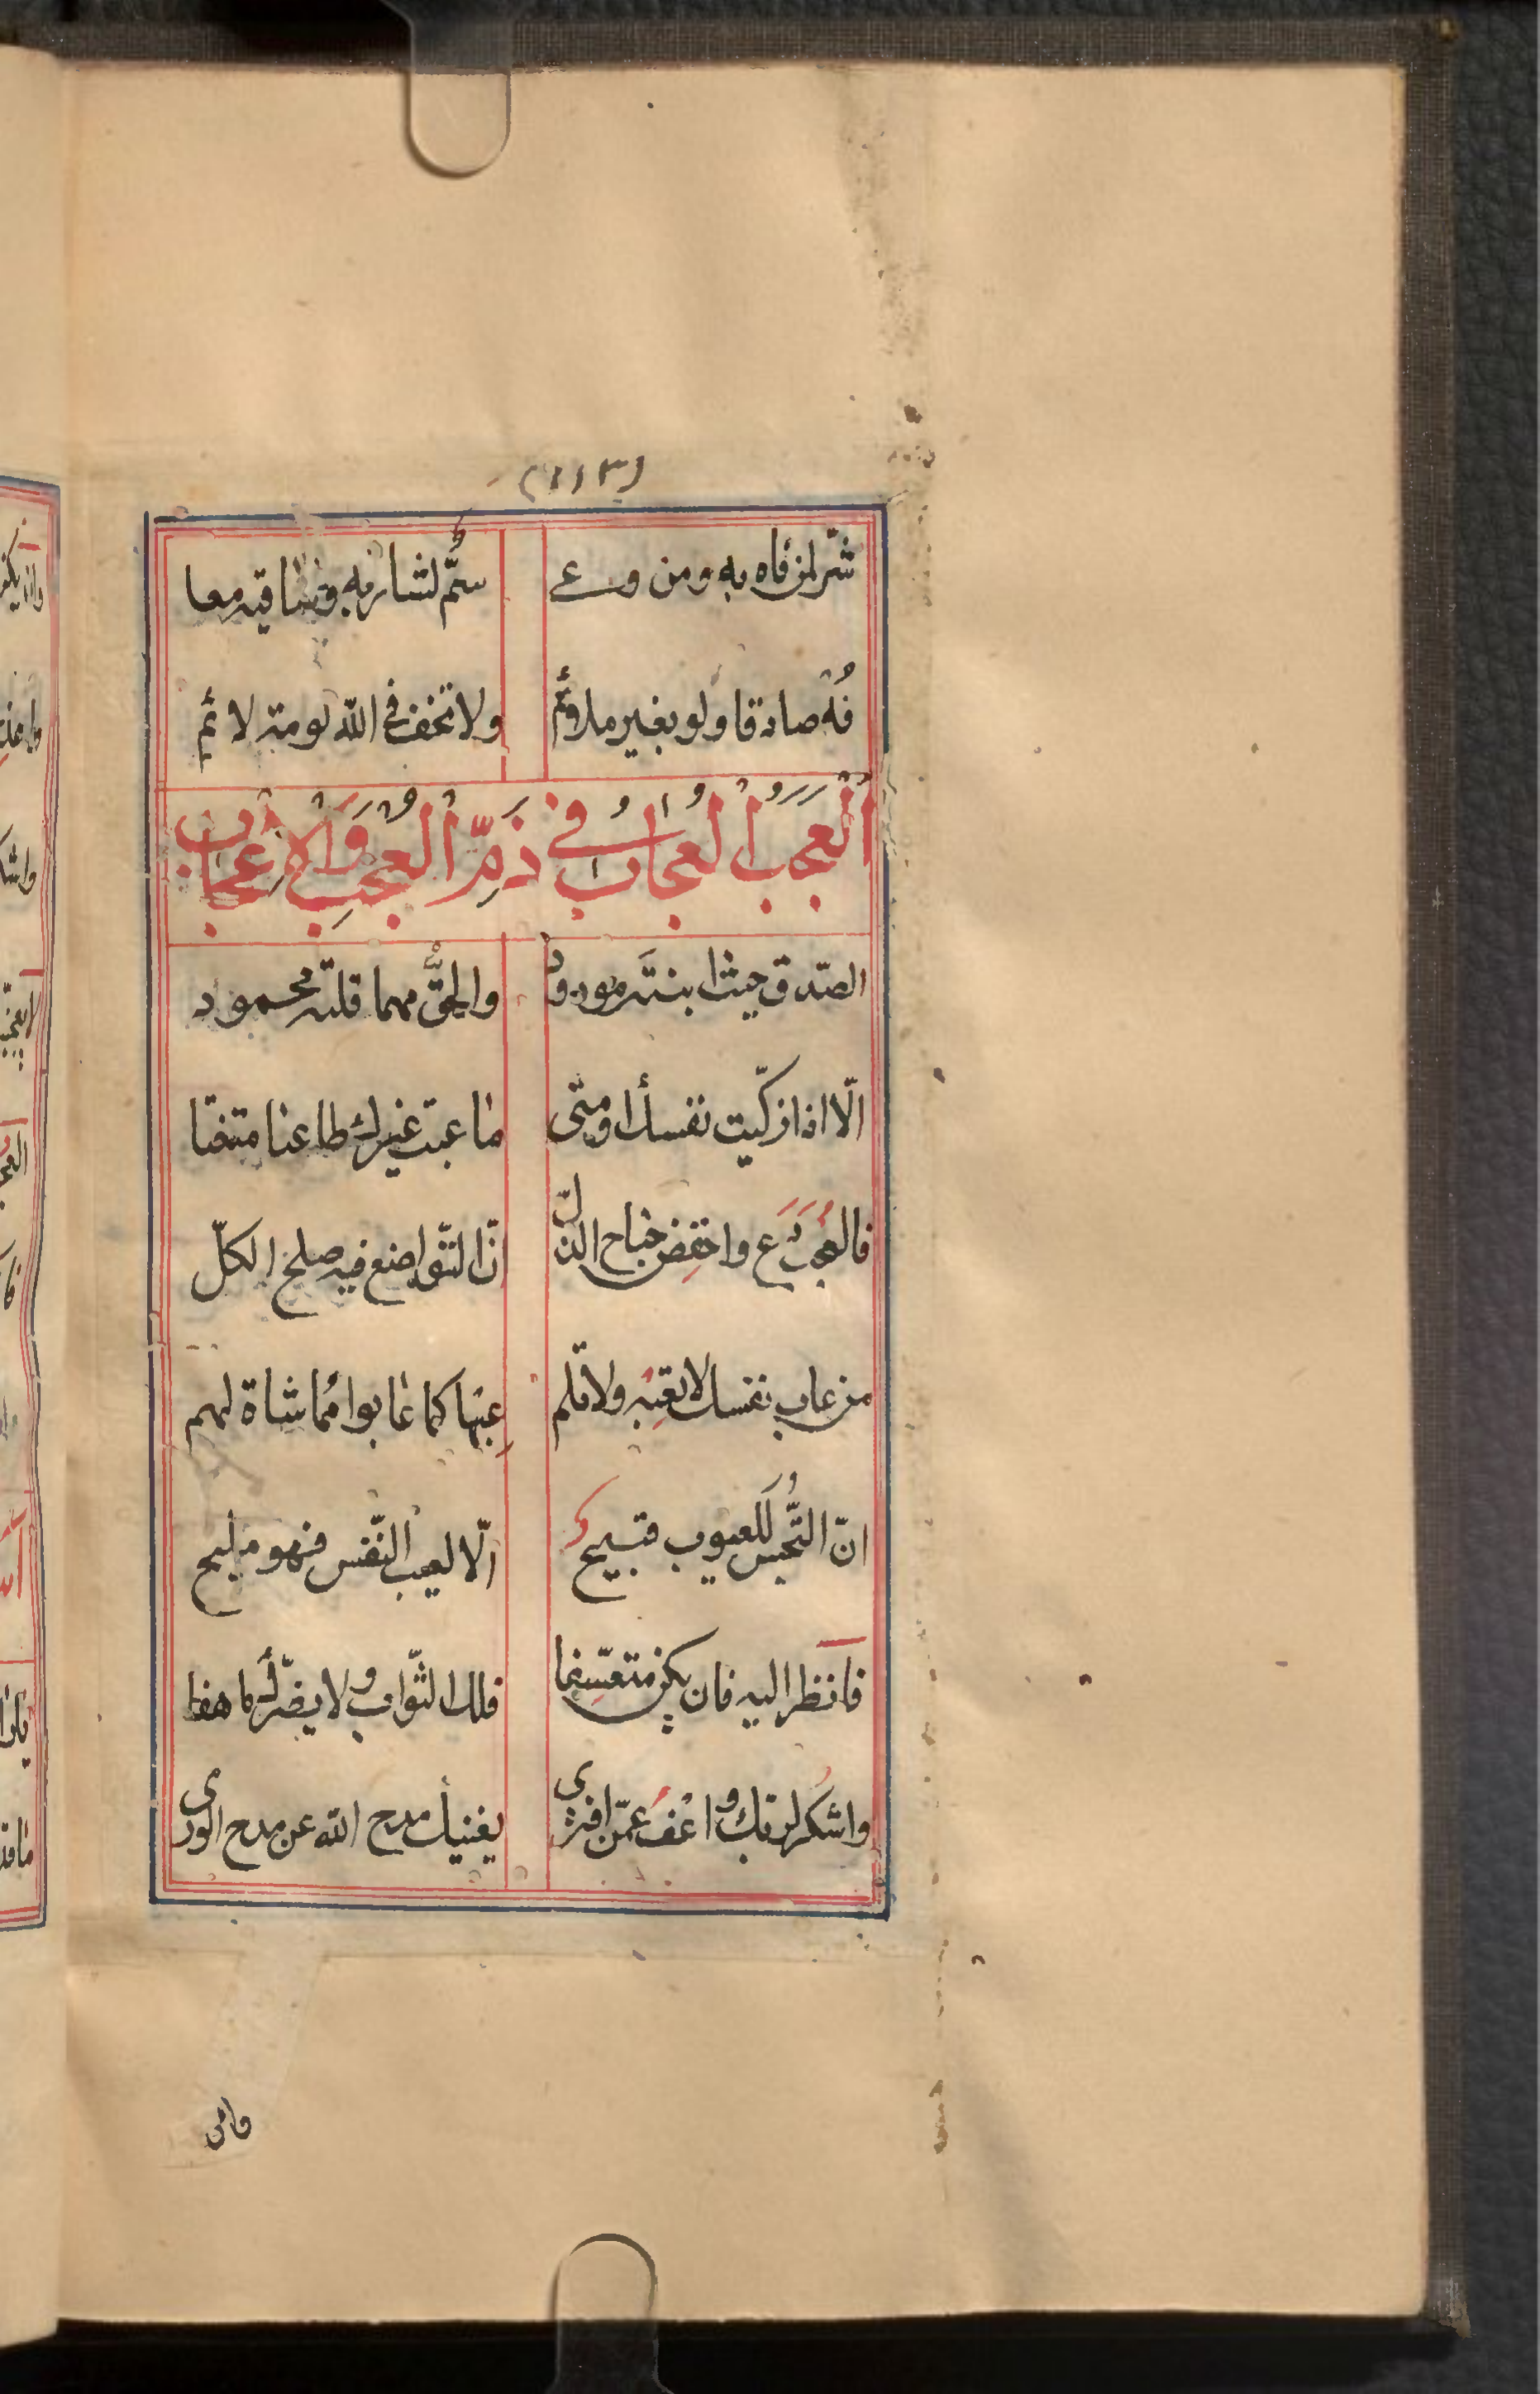 (١١٣)
شرّ لمن فاه به ومن وعى سُمّ لشاربه وساقيه معا
فُه صادقا ولو بغير ملائم ولا تخف في الله لومة لائم
اَلْعَجَبُ الْعُجَابُ في ذَمِّ الْعُجْبِ وَالْإِعْجَابِ
الصّدق حيث ابنتَه مورود والحقّ مهما قلته محمود
الّا اذا زكّيت نفسك او متى ما عبت غيرك طاعنا متعنتا
فالعجبَ دَع واخفِض جناح الذلّ انّ التّواضع فيه صلح الكلّ
من عاب نفسك لا تعِبْه ولا تلم عِبها كما عابوا مماشاة لهم
انّ التّجسّس للعيوب قبيح الّا لعيب النّفس فهو مليح
فانظر اليه فان يكن متعسِّفا فلك الثّواب ولا يضرّك ما هفا
واشكر لربّك واعفُ عمّن افترى يغنيك مدح الله عن مدح الورى